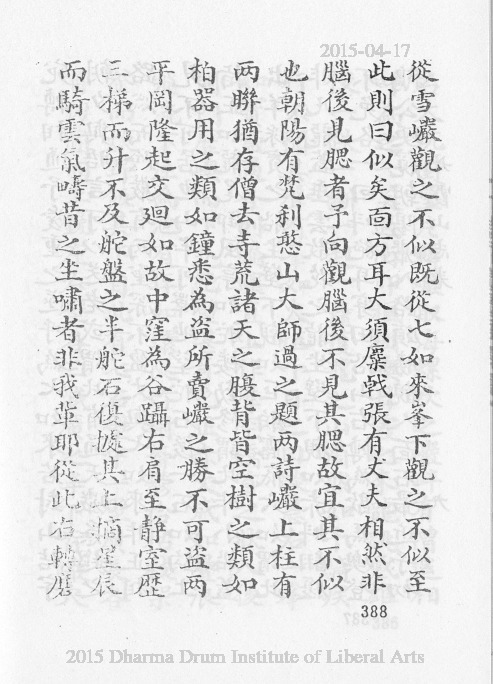 2015-04-17
從雪巘觀之不似既從七如來峯下觀之不似至
此則曰似矣面方耳大須麋戟張有丈夫相然非
腦後見腮者予向觀腦後不見其腮故宜其不似
也朝陽有梵刹憨山大師過之題两詩巘上柱有
两聮猶存僧去寺荒諸天之腹背皆空樹之類如
柏器用之類如鐘悉為盗所賣巘之勝不可盗两
平岡隆起交廻如故中窪為谷躡右肩至静室歴
三梯而升不及舵盤之半舵石復據其上摘星辰
而騎雲氣疇昔之坐嘯者非我輩耶從此右轉磨
388
2015 Dharma Drum Institute of Liberal Arts